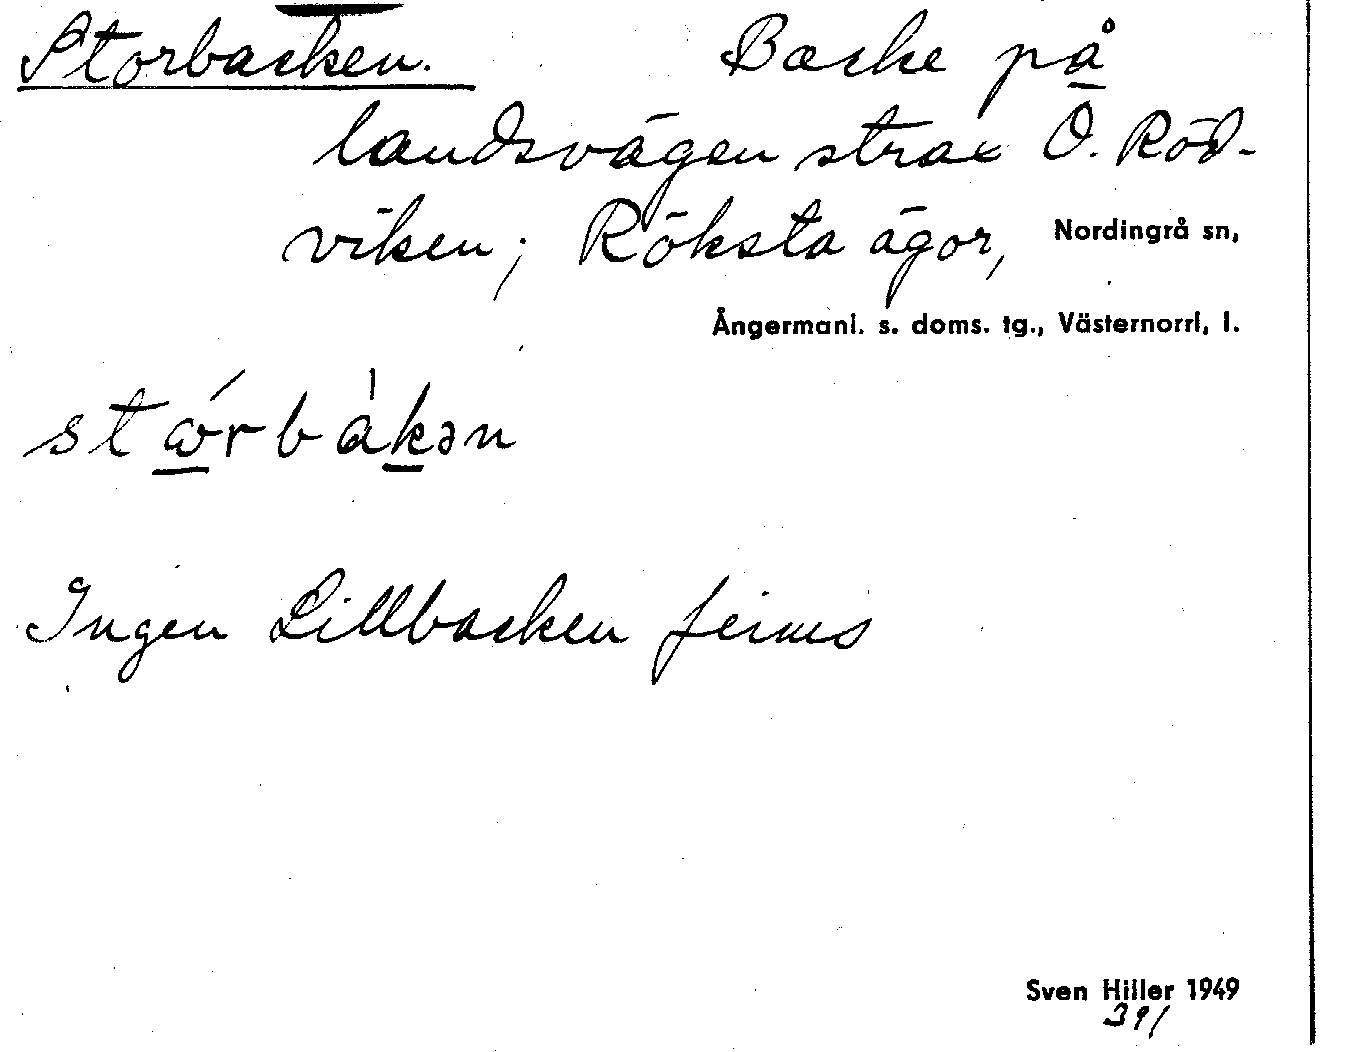 Storbacken. Backe på
landsvägen strax Ö. Röd-
viken; Röksta ägor, Nordingrå sn,
Ångermanl. s. doms. tg., Västernorrl. l.
stɷ́rbàkən
Ingen Lillbacken finns
Sven Hiller 1949
391